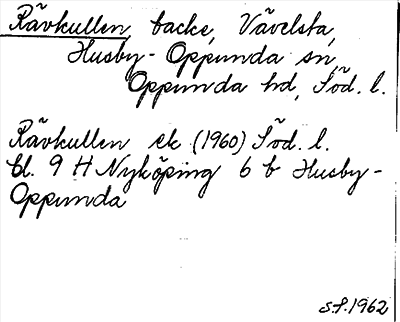 Rävkullen, backe, Vävelsta,
Husby-Oppunda sn,
Oppunda hd, Söd. l.
Rävkullen ek (1960) Söd. l.
bl. 9 H Nyköping 6 b Husby-
Oppunda
S.f. 1962